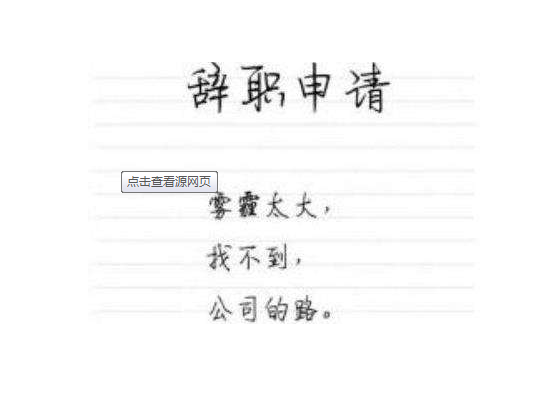 辞职申请
点击查看源网页
雾霾太大，
找不到，
公司的路。